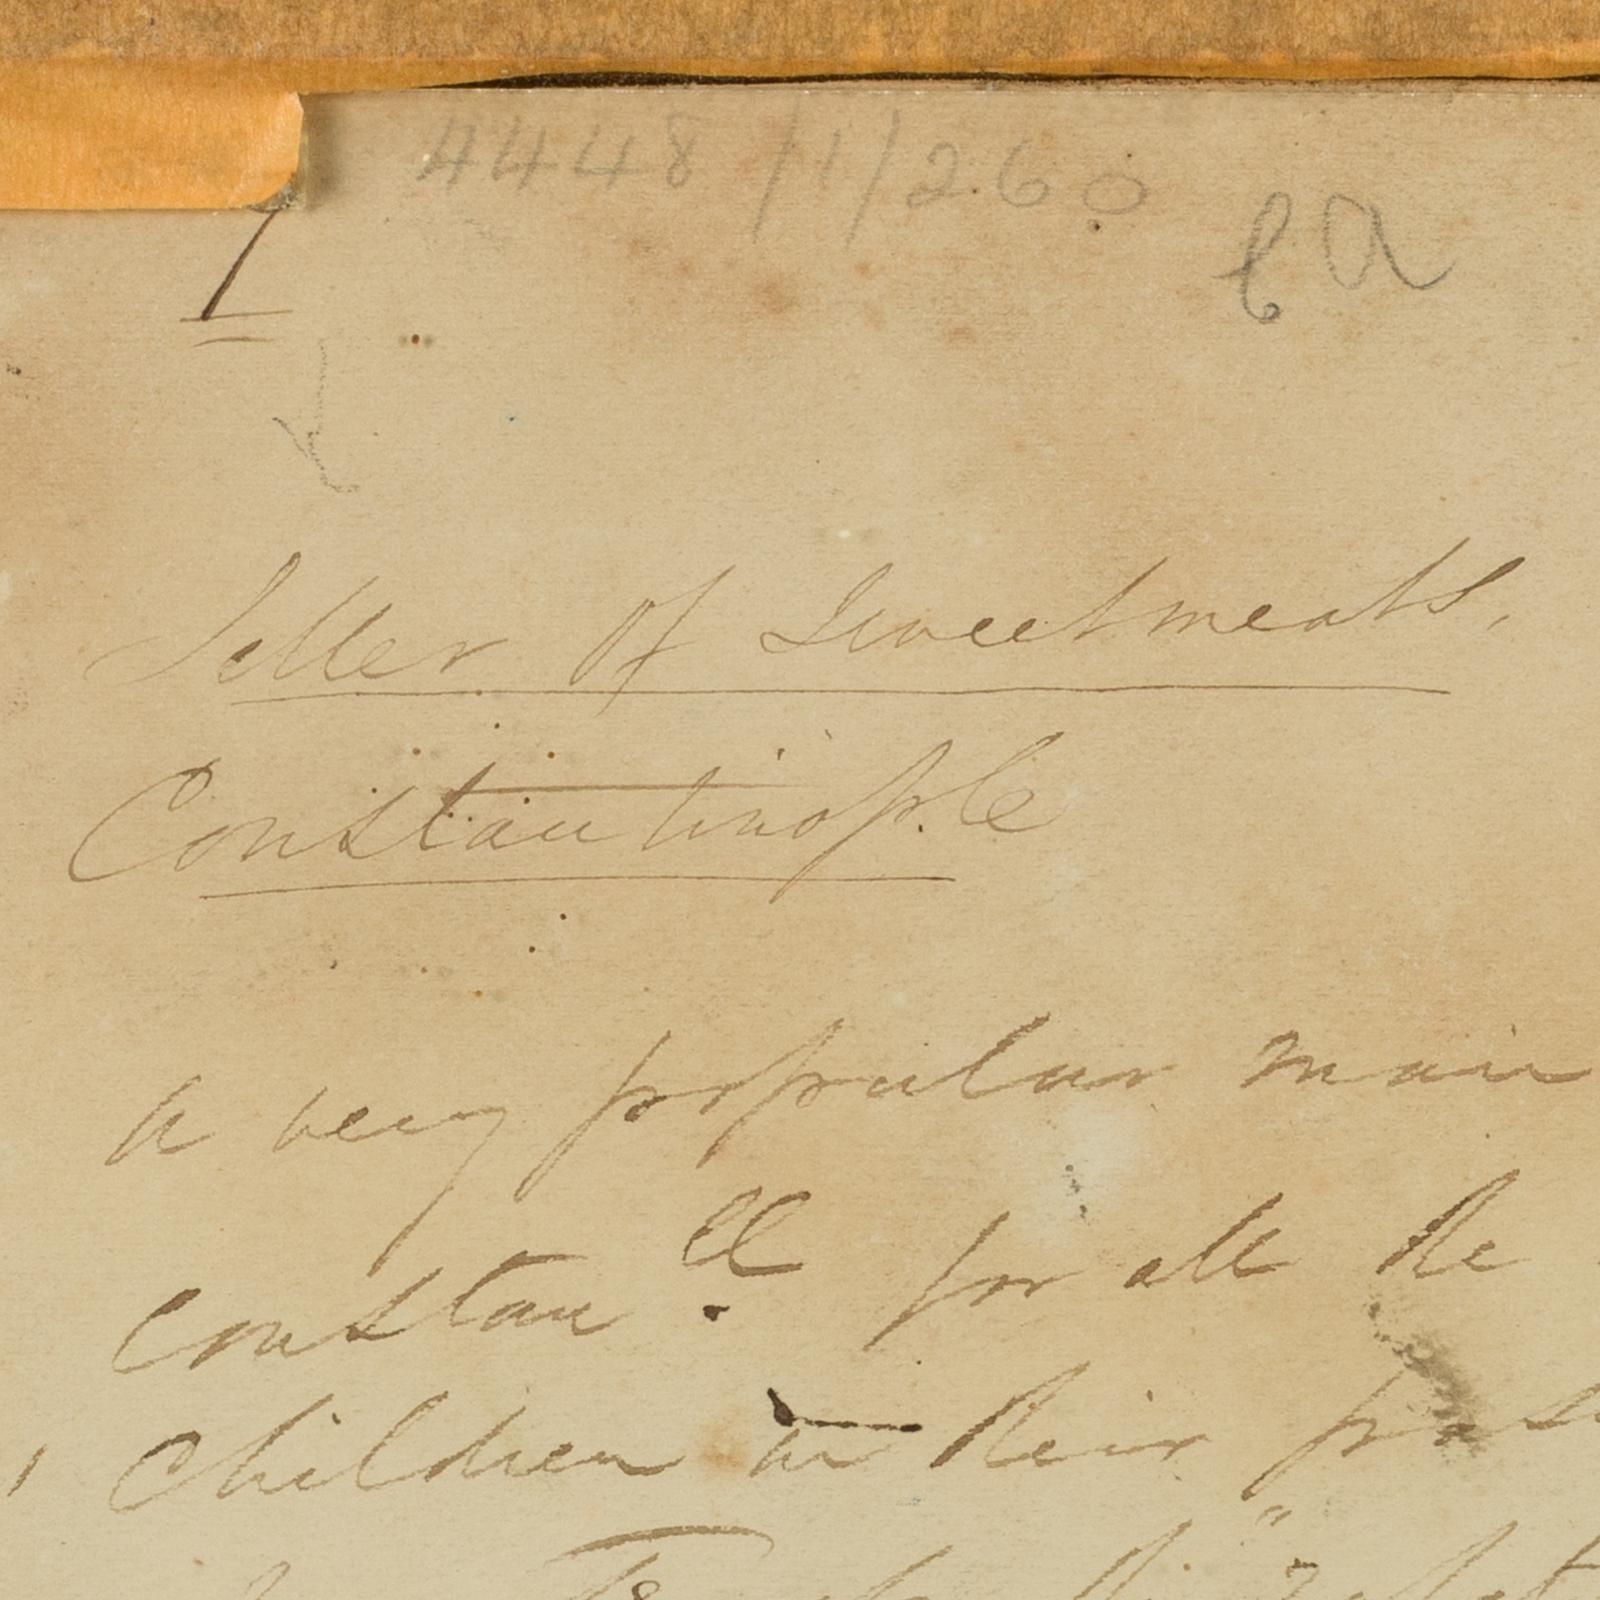 4448/1/260
6a
1
Seller Of Sweetmeats,
Constantinople
a very popular man
Constan ll for all the
Children in their pass